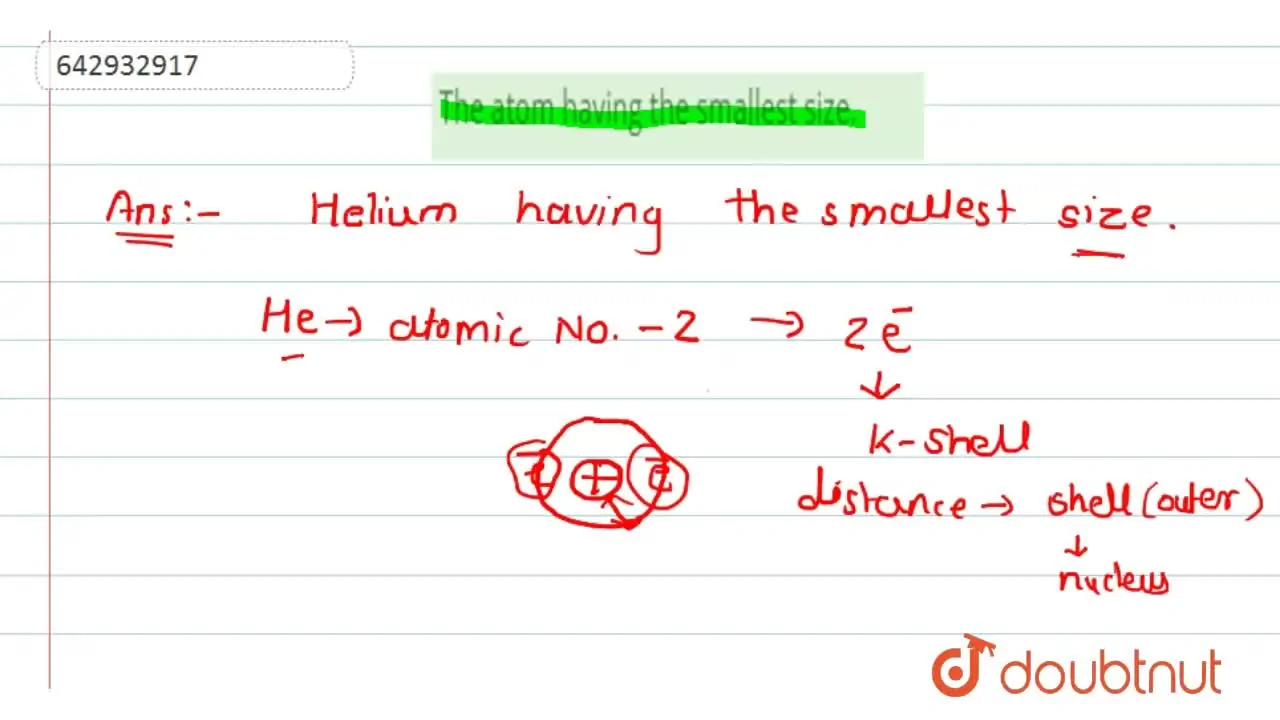 642932917
The atom having the smallest size,
Ans:- Helium having the smallest size.
He → atomic No. - 2 → 2e⁻
↓
K-shell
e⁻ + e⁻
distance → shell (outer)
↓
nucleus
doubtnut